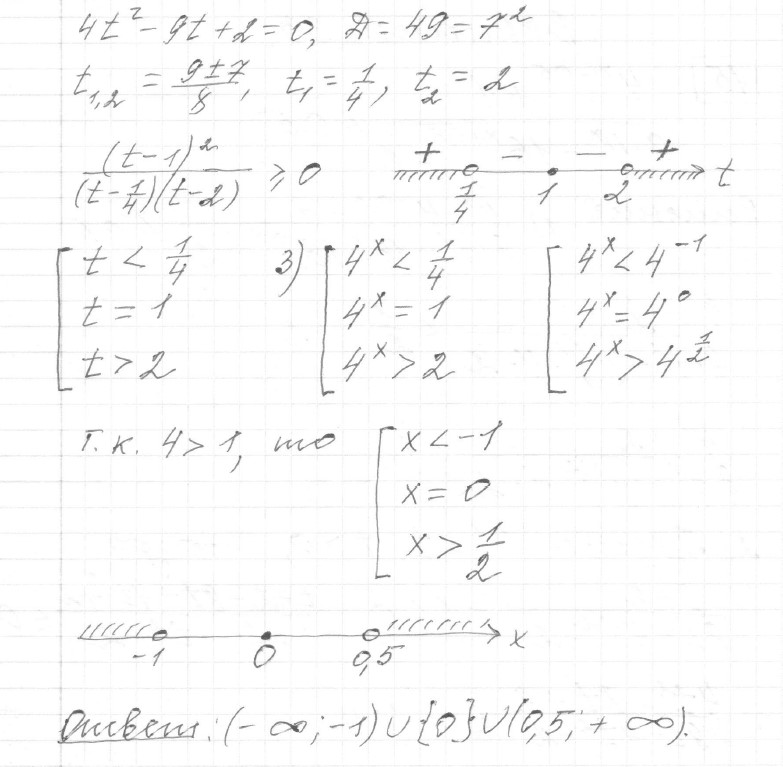 4t² - 9t + 2 = 0, D = 49 = 7²
t₁,₂ = (9±7)/8, t₁ = 1/4, t₂ = 2
(t-1)²/((t-1/4)(t-2)) ⩾ 0 + - - + t
1/4 1 2
[ t < 1/4 3) [ 4ˣ < 1/4 [ 4ˣ < 4⁻¹
t = 1 4ˣ = 1 4ˣ = 4⁰
t > 2 4ˣ > 2 4ˣ > 4^(1/2)
т.к. 4 > 1, то [ x < -1
x = 0
x > 1/2
-1 0 0,5 x
Ответ: (-∞; -1) ∪ {0} ∪ (0,5; +∞).